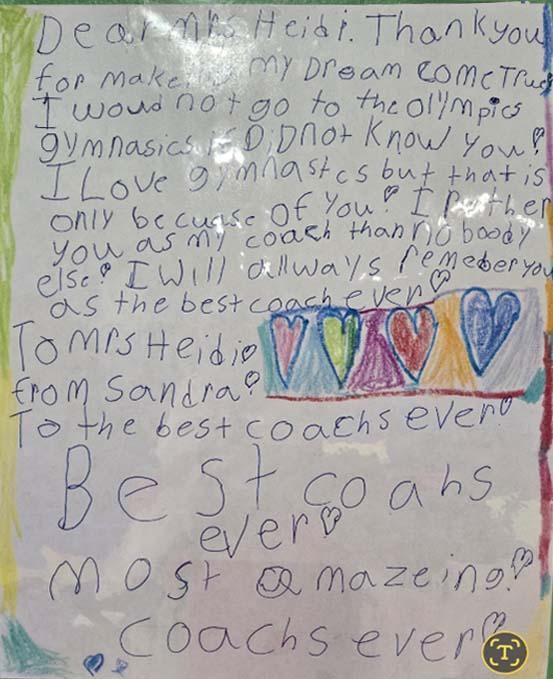 Dear mrs Heidi. Thankyou
for make my Dream come True
I woud not go to the olympics
gymnasics if Didnot Know you!
I Love gymnastcs but that is
only becuase of you! I
you as my coach than no boody
else! I will allways remeber you
as the best coach ever
To mrs Heidi
from Sandra!
To the best coachs ever!
Best coahs
ever
most amazeing!
coachs ever